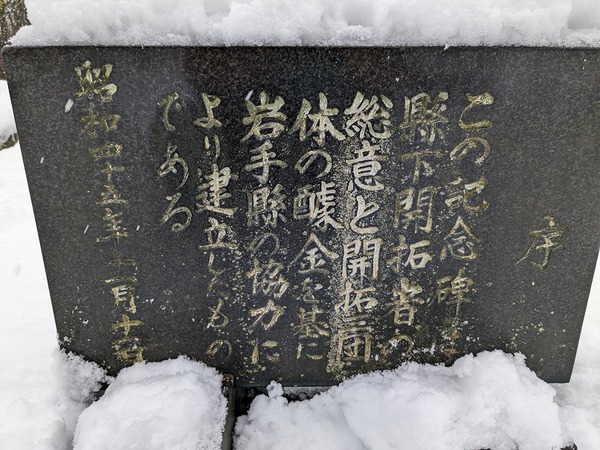 序
この記念碑は
縣下開拓者の
総意と開拓団
体の醵金を基に
岩手縣の協力に
より建立したもの
である
昭和四十五年十一月十